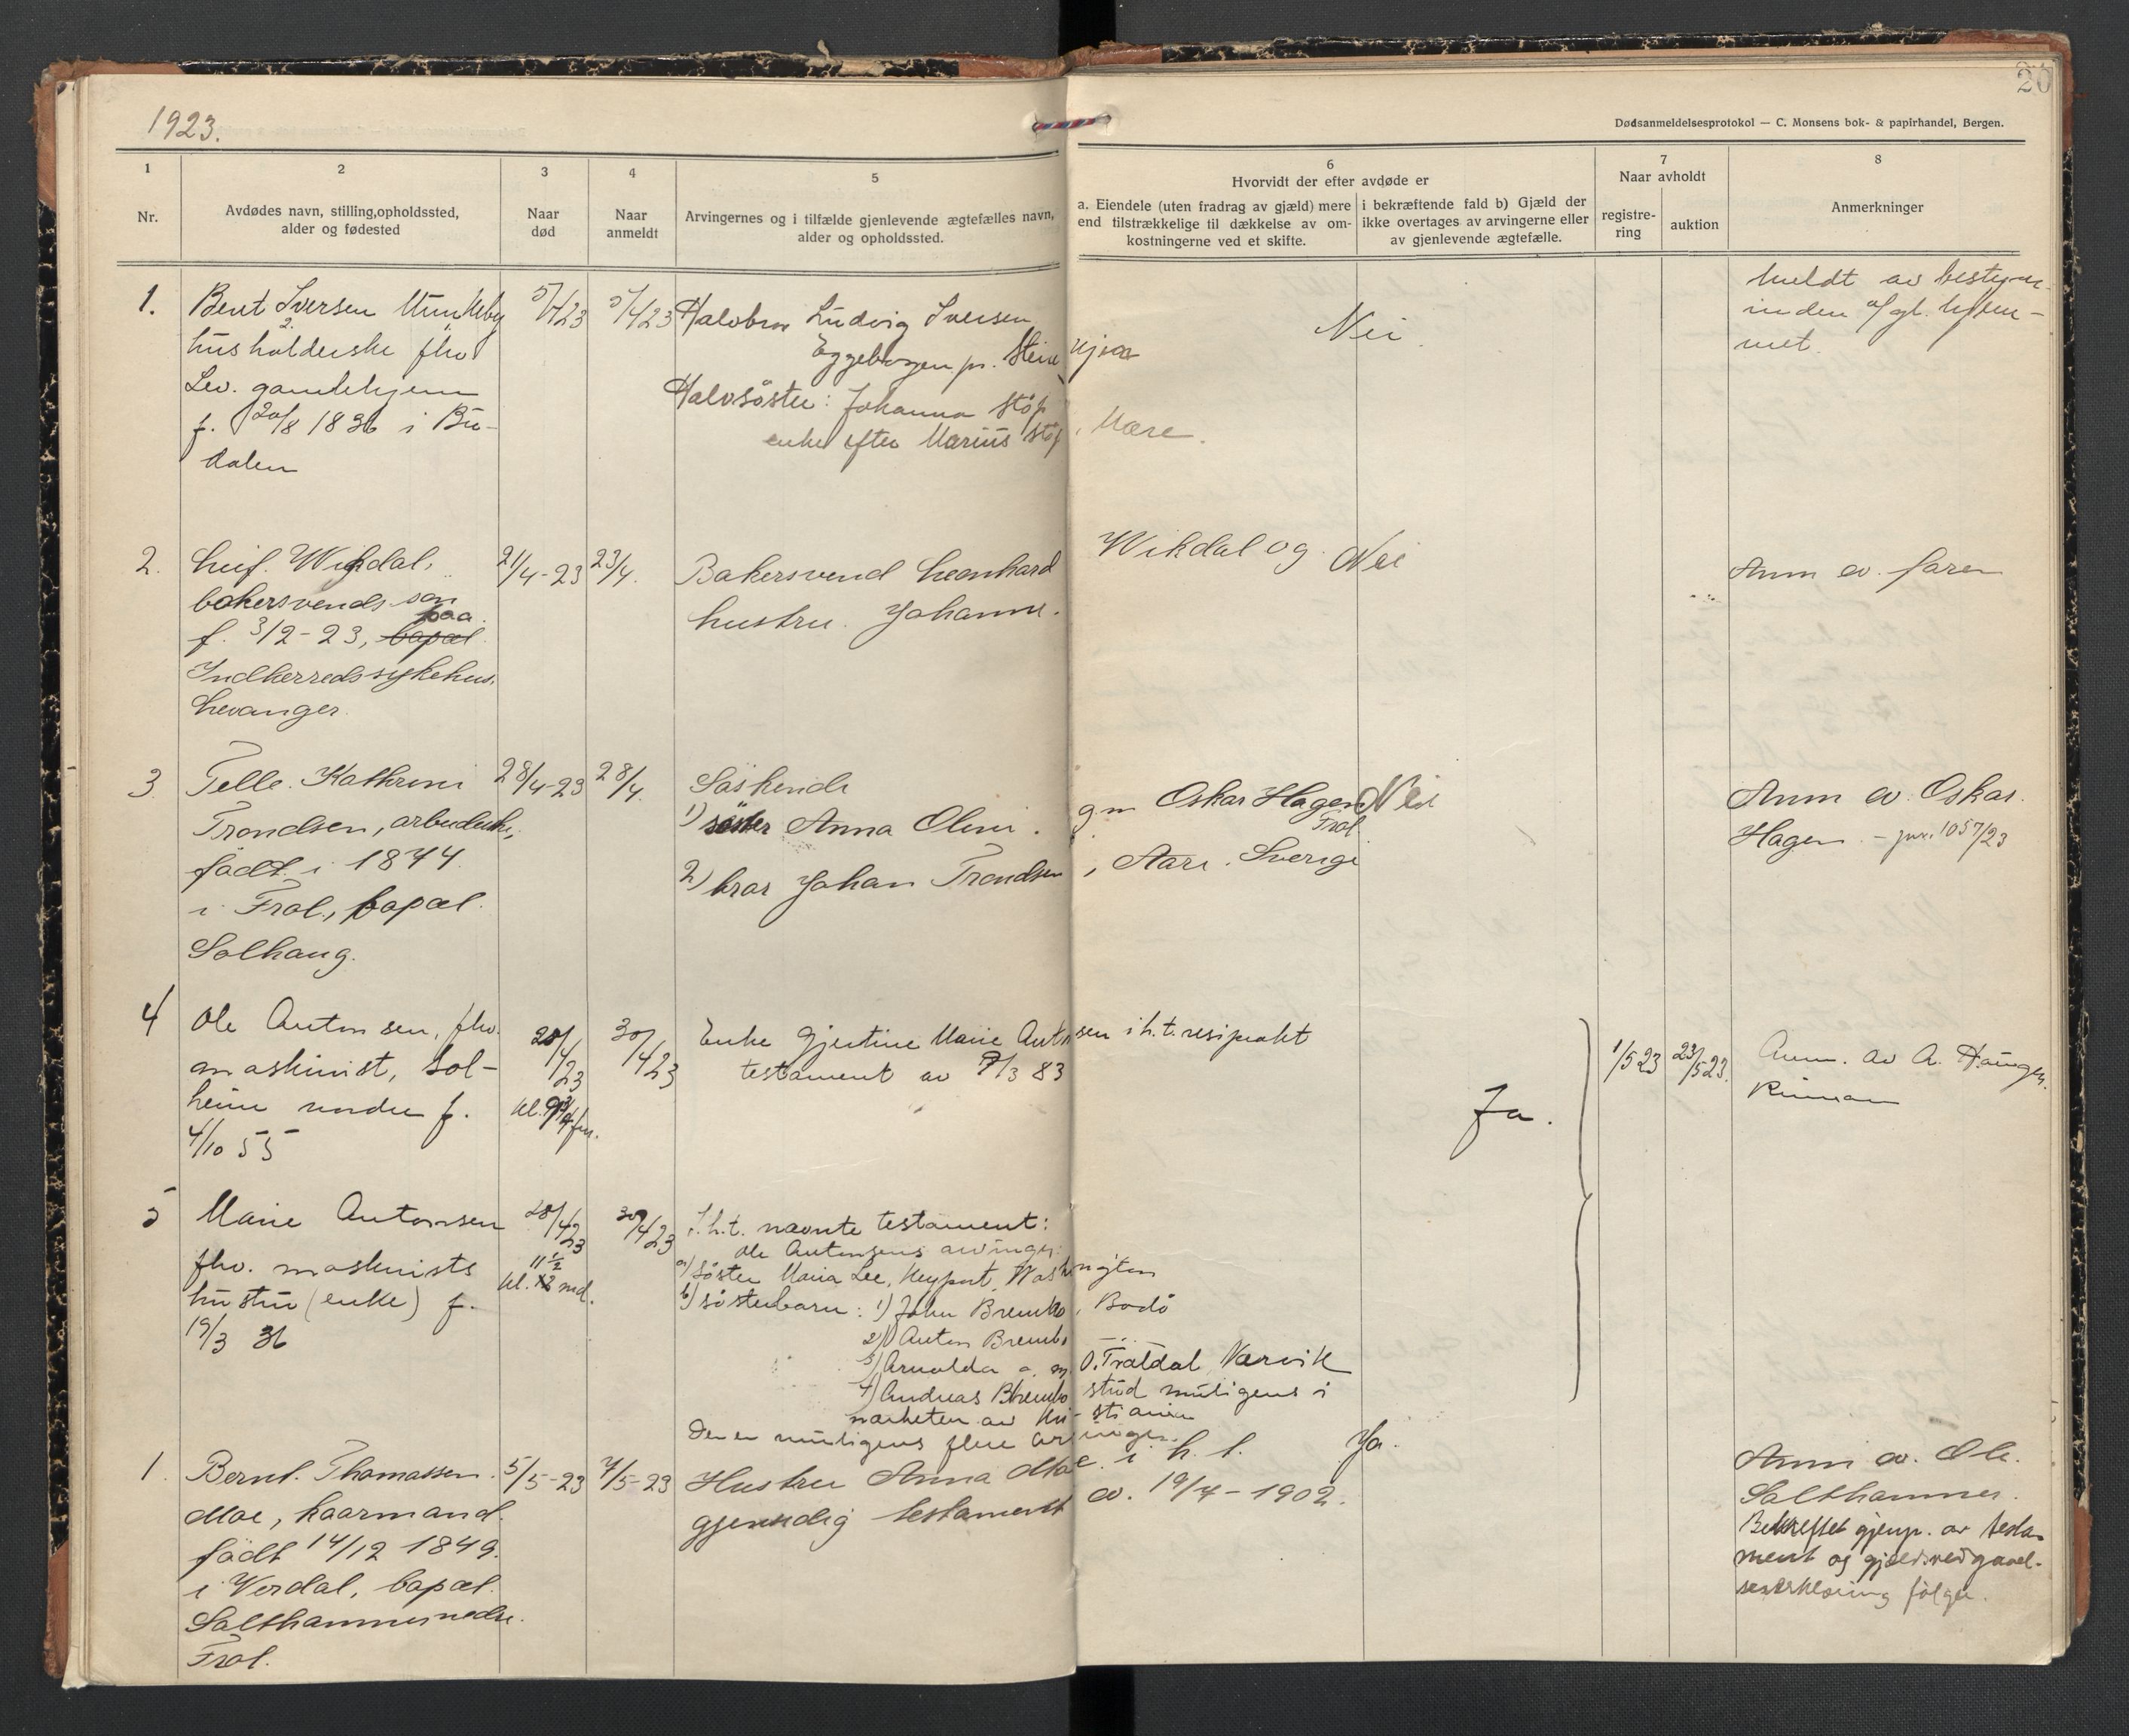 1923.
20
Dødsanmeldelsesprotokol — C. Monsens bok- & papirhandel, Bergen.
1
Nr.
2
Avdødes navn, stilling, opholdssted,
alder og fødested
3
Naar
død
4
Naar
anmeldt
5
Arvingernes og i tilfælde gjenlevende ægtefælles navn,
alder og opholdssted.
6
Hvorvidt der efter avdøde er
a. Eiendele (uten fradrag av gjæld) mere
end tilstrækkelige til dækkelse av om-
kostningerne ved et skifte.
i bekræftende fald b) Gjæld der
ikke overtages av arvingerne eller
av gjenlevende ægtefælle.
7
Naar avholdt
registre-
ring
auktion
8
Anmerkninger
1.
Berit Iversen Munkeby
husholderske fhv
Lev. gamlehjem
f. 20/8 1836 i Bu-
dalen
5/4 23
5/4 23
Halvbror Ludvig Iversen
Eggebogen pr. Steinkjær
Halvsöster: Johanna Stöp
enke efter Marius Stöp, Mære.
Nei.
Meldt av bestyrer-
inden
2.
Leif Wikdal,
bakersvends søn
f. 3/2-23, bopæl paa
Indherreds sykehus,
Levanger.
21/4-23
23/4.
Bakersvend Leonhard Wikdal og
hustru Johanne.
Nei
Anm av faren
3
Pelle Kathrine
Trondsen, arbeiderske,
født i 1844
i Frol, bopæl
Solhaug.
28/4-23
28/4.
Søskende
1) søster Anna Oline. gm Oskar Hagen
Frol
2) bror Johan Trondsen, Aare. Sverige
Nei
Anm av Oskar
Hagen. - jnr. 1057/23
4
Ole Antonsen, fhv.
maskinist, Sol-
heim nedre f.
4/10 55
28/4 23
kl. 9 3/4 fm.
30/4 23
Enke Gjertine Marie Antonsen i h.t. resiprokt
testament av 9/3 83
Ja.
1/5 23
23/5 23.
Anm. av A. Haugen
Rinnan
5
Marie Antonsen
fhv. maskinists
hustru (enke) f.
19/3 36
28/4 23
11 1/2
kl. 12 md.
30/4 23
I.h.t. nævnte testament:
Ole Antonsens arvinger:
a) Söster Maria Lee, Keyport, Washington
b) Sösterbarn: 1) John Brembo, Bodö
2) Anton Brembo —"—
3) Arnolda g. m. O. Trældal Narvik
4) Andreas Brembo stud muligens i
nærheten av Kri-stiania
Der er muligens flere arvinger.
1.
Bernt Thomassen
Moe, kaarmand.
født 14/12 1849.
i Verdal, bopæl.
Salthammer nedre.
Frol.
5/5-23
7/5-23
Hustru Anna Moe i h. t.
gjensidig testament av. 19/4-1902.
Ja.
Anm av. Ole
Salthammer.
Bekreftet gjenp. av testa-
ment og gjældsvedgaael-
seserklæring følger.